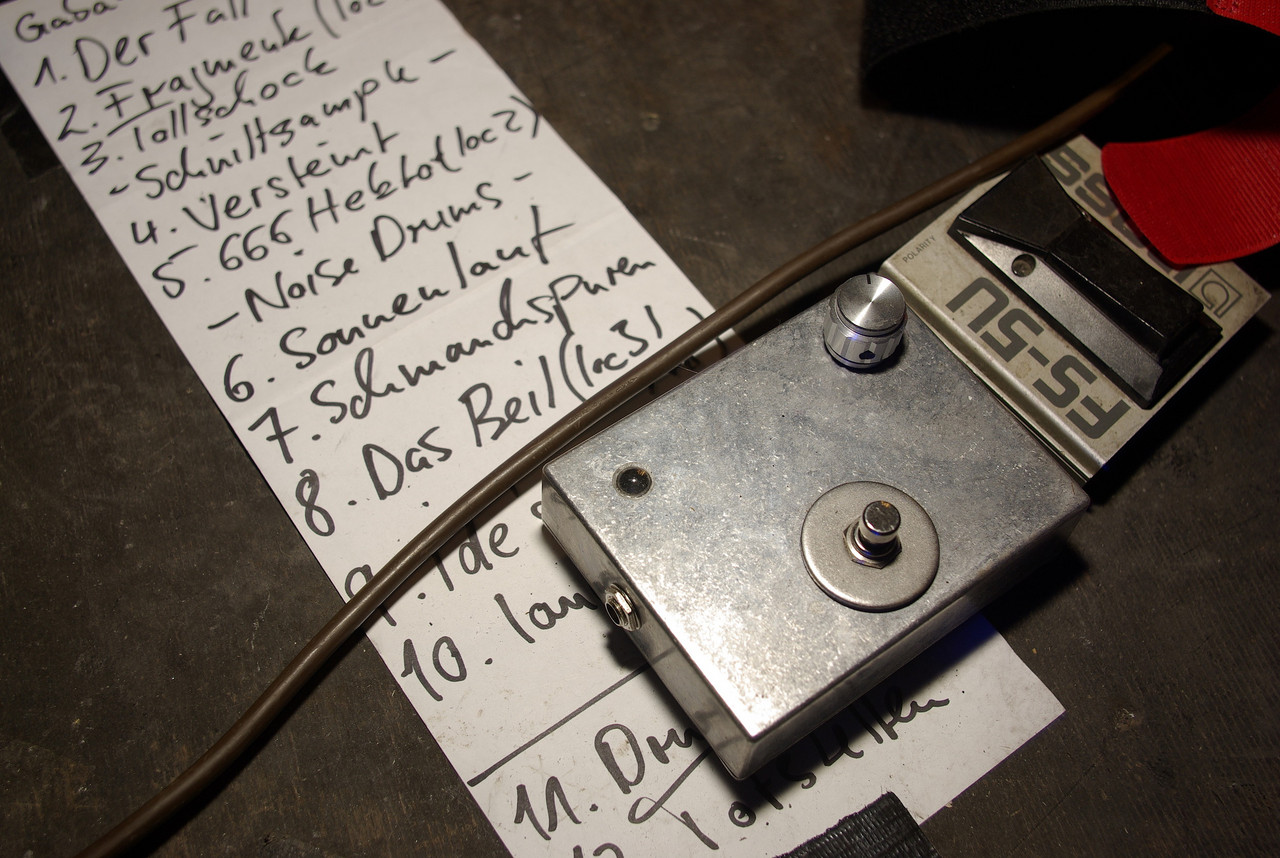 Gaba
1. Der Fall
2. Fragmente (loc
3. Tollschock
- Schnittsample -
4. Versteint
5. 666 Hektot (loc2)
- Noise Drums -
6. Sonnenlauf
7. Schmandspuren
8. Das Beil (loc3)
9. Ide
10. lan
11. Dru
POLARITY
FS-5U
BOSS